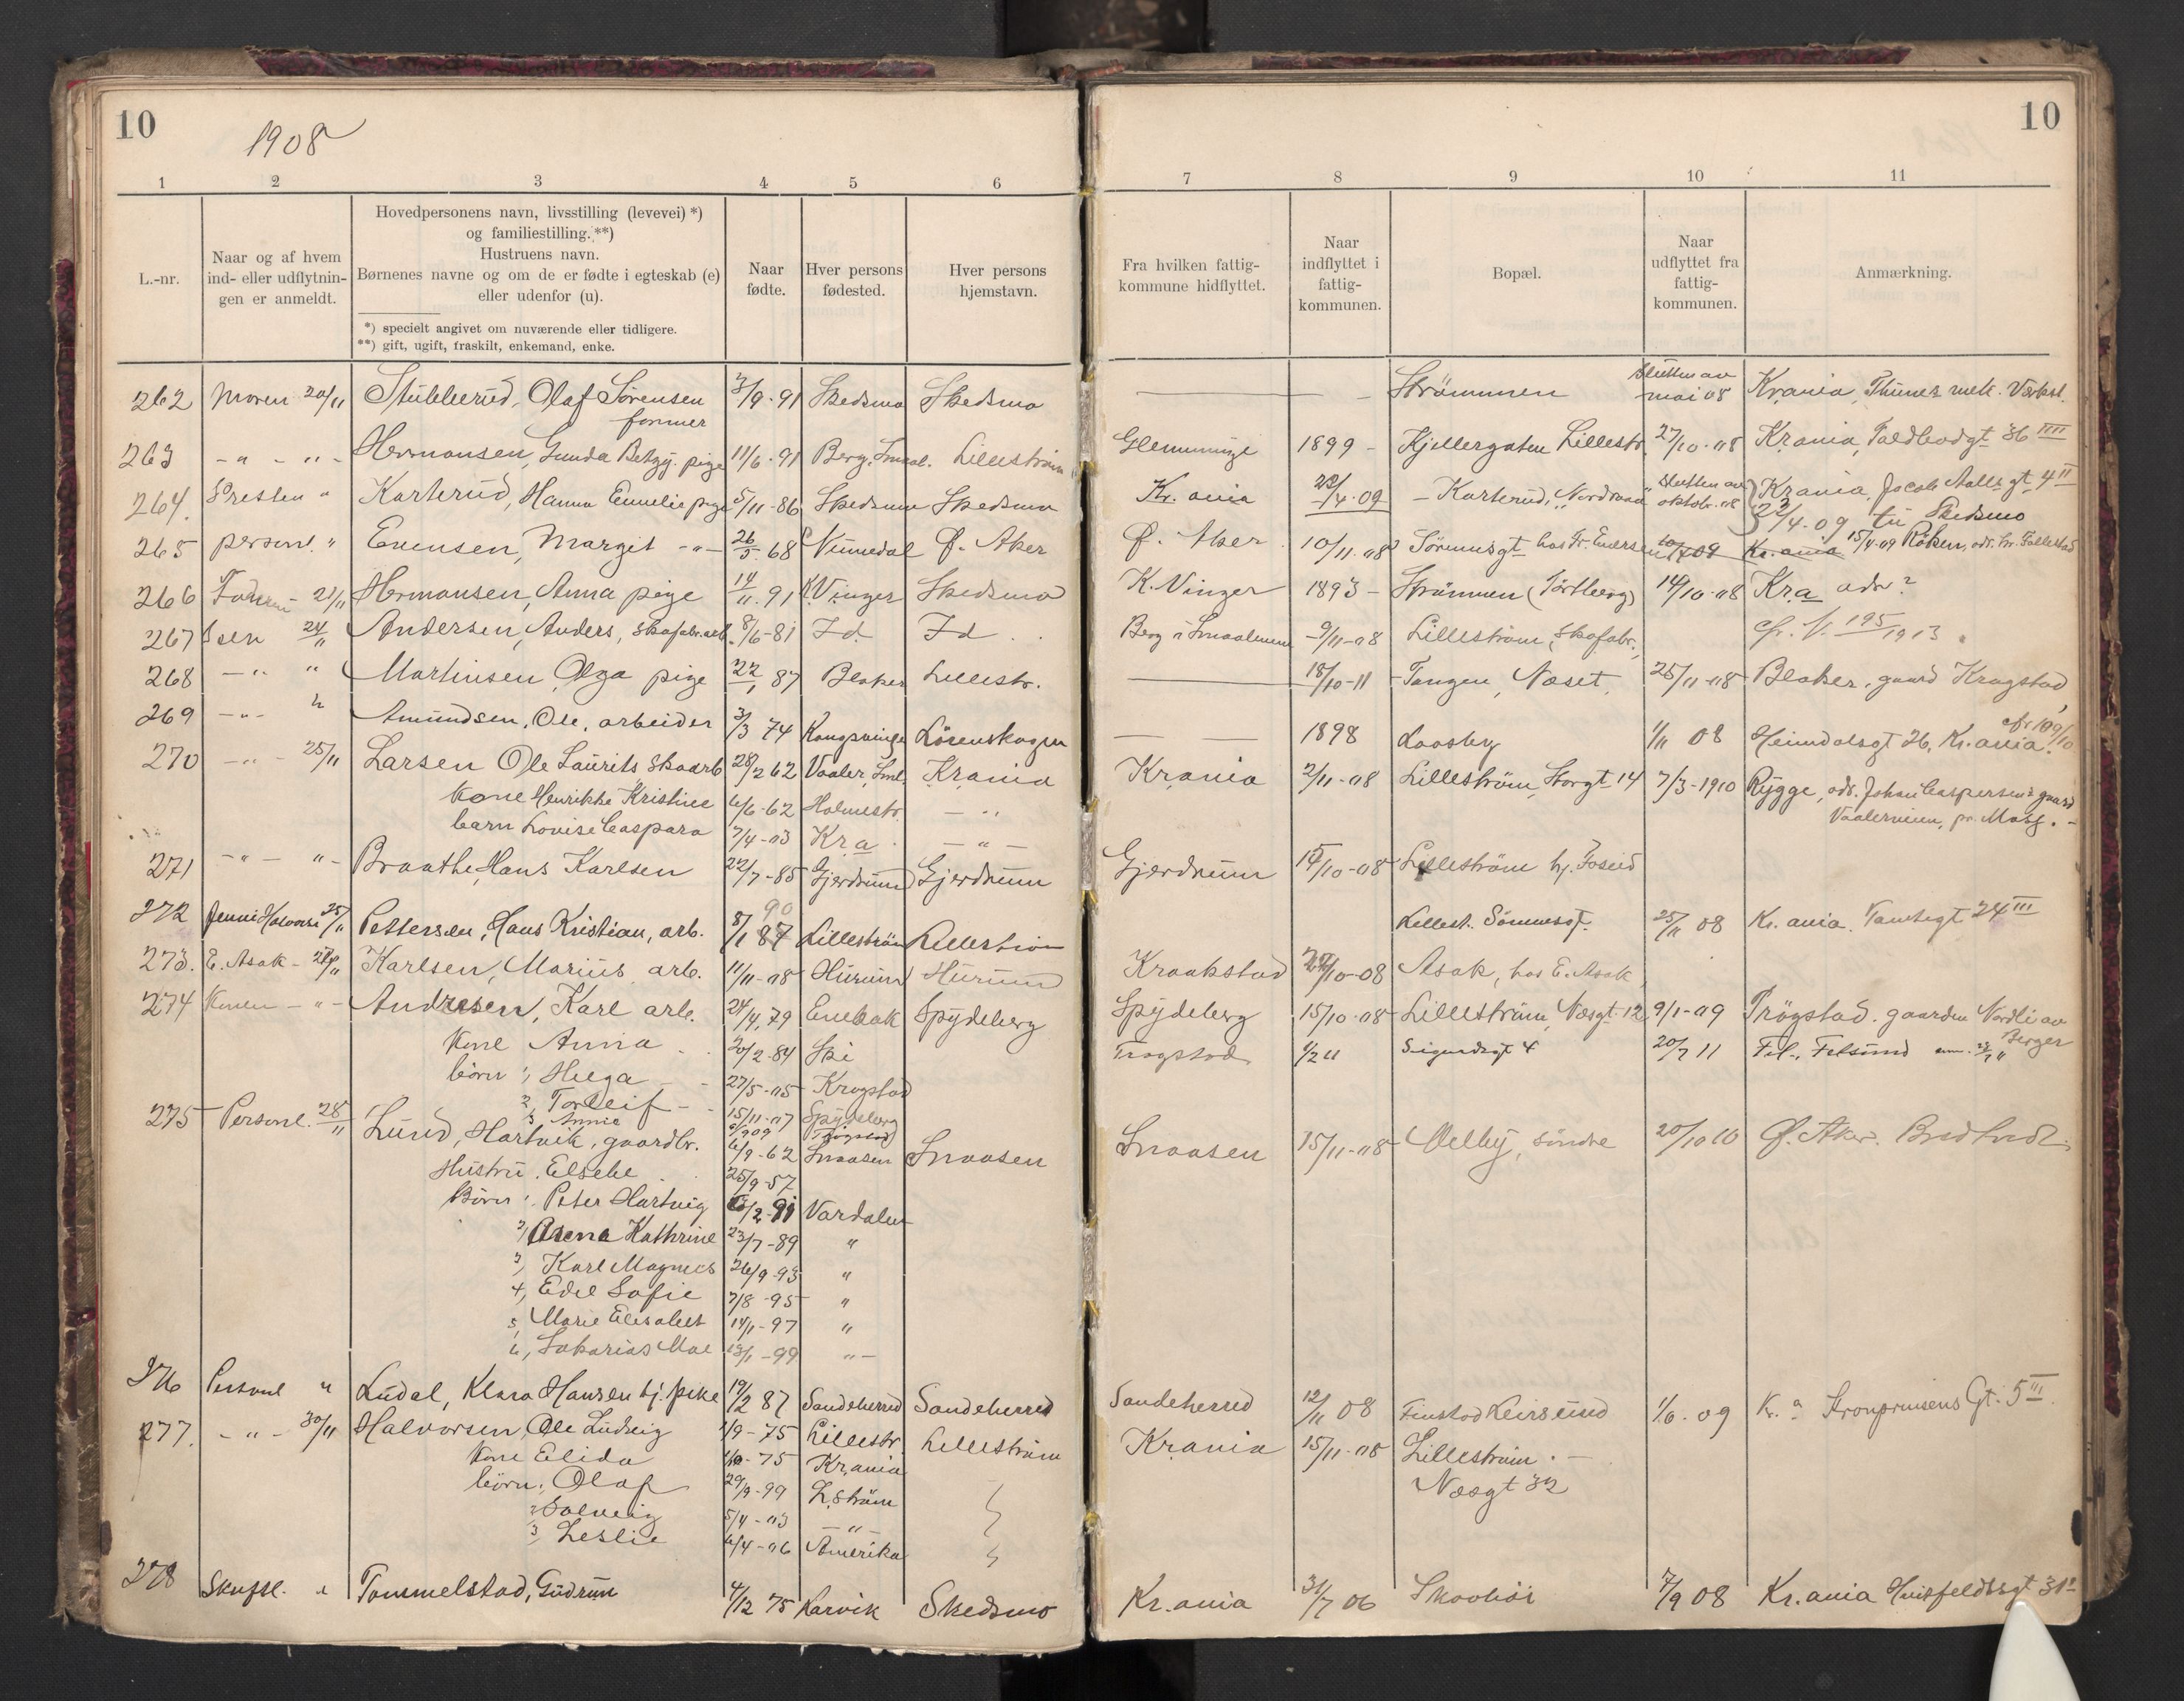 10
1908
10
1 2 3 4 5 6 7 8 9 10 11
L.-nr.
Naar og af hvem ind- eller udflytnin-gen er anmeldt.
Hovedpersonens navn, livsstilling (levevei) *)
og familiestilling. **)
Hustruens navn.
Børnenes navne og om de er fødte i egteskab (e)
eller udenfor (u).
*) specielt angivet om nuværende eller tidligere.
**) gift, ugift, fraskilt, enkemand, enke.
Naar fødte.
Hver persons fødested.
Hver persons hjemstavn.
Fra hvilken fattig-kommune hidflyttet.
Naar indflyttet i fattig-kommunen.
Bopæl.
Naar udflyttet fra fattig-kommunen.
Anmærkning.
262 Moren 20/11 Stubberud, Olaf Sørensen 3/9-91 Skedsmo Skedsmo — Strømmen Slutten av mai 08 Kr.ania, Thunes mek. Værkst.
former
263 -"- "- Hermansen, Gunda Betzy. pige 11/6-91 Berg. Smaal. Lillestrøm Glemminge 1899 - Kjellergaten Lillestr. 27/10-08 Kr.ania, Toldbodgt 36 IIII
264. Presten " Karterud, Hanna Emmelie pige 5/11-86 Skedsmo Skedsmo Kr.ania 22/4-09 - Karterud, Nordraaa Slutten av oktob. 08 Kr.ania, Jacob Aalls gt 4 II
22/4-09 til Skedsmo
265 personl. " Evensen, Margit -"- 26/5 68 Numedal Ø. Aker Ø. Aker 10/11-08 Sørumsgt hos Fr. Evensen Kr.ania 15/4-09 Røken,
266 21/11 Hermansen, Anna pige 14/11-91 K.Vinger Skedsmo K.Vinger 1893 - Strømmen 14/10-08 Kr.a adr?
267 24/11 Andersen, Anders, skofabr.arb. 8/6-81 Id Id Berg i Smaalenene 9/11-08 Lillestrøm, skofabr. cfr. 195/1913
268 -"- " Martinsen Olga pige 22/1 87 Blaker Lillestr. — 18/10-11 - Tangen, Næset, 25/11-08 Blaker, gaard Krogstad
269 -"- " Amundsen, Ole, arbeider 3/3 74 Kongsvinger Lørenskogen — 1898 Laasby 1/11 08 Heimdalsgt 26, Kr.ania. cfr 109/10
270 -"- 25/11 Larsen Ole Laurits skoarb 28/2 62 Vaaler, Sml. Kr.ania Kr.ania 2/11-08 Lillestrøm, Storgt 14 7/3-1910 Rygge, adr. Johan Caspersens gaard
Kone Henrikke Kristine 6/6-62 Holmestr. -"-
Vaalerveien, pr. Moss.
barn Lovise Caspara 7/4-03 Kr.a -"-
271 -"- "- Braathe, Hans Karlsen 22/7-85 Gjerdrum Gjerdrum Gjerdrum 15/10-08 Lillestrøm hj. Foseid
90
272 25/11 Pettersen, Hans Kristian, arb. 8/1 87 Lillestrøm Lillestrøm Lillest. 25/11 08 Kr.ania. 24 III
273. E. Asak - Karlsen, Marius arb. 11/11-08 Hurum Hurum Kraakstad Asak, hos E. Asak
274 Konen -"- Andresen, Karl arb. 24/4, 79 Enebak Spydeberg Spydeberg 15/10-08 - Lillestrøm, Næsgt 12 9/1-09 Trøgstad. gaarden Nordli av Berger
Kone Anna 20/2-84 Ski Trøgstad 1/2 11 Sigurdsgt 4 20/7 11 Fetsund
børn 1, Helga 27/5-05 Krogstad
2, Torleif 15/11-07 Spydeberg
3 Annie 09 Trøgstad
275 Personl. 28/11 Lund, Hartvik, gaardbr. 6/9-62 Snaasen Snaasen Snaasen 15/11-08 Melby, søndre 20/10 10 Ø. Aker.
Hustru Elsebe 25/9-57
Børn 1. Peter Hartvig 6/2-91 Værdalen
2, Arena Kathrine 23/7-89 "
3, Karl Magnus 26/9-93 "
4, Edel Sofie 7/8-95 "
5, Marie Elisabet 14/1-97 "
6, Sakarias Moe 13/1-99 "-
276 Personl " Ludal, Klara Hansen tj. pike 19/2 87 Sandeherred Sandeherred Sandeherred 12/11 08 Finstad Leirsund 1/6-09 Kr.a Kronprinsens Gt. 5 III
277. -"- 30/11 Halvorsen, Ole Ludvig 1/9-75 Lillestr. Lillestrøm Kr.ania 15/11-08 Lillestrøm.
Kone Elida 75 Kr.ania
Næsgt 32
børn: Olaf 29/9-99 L.strøm
2, Solveig 5/4-03 -"-
3, Leslie 6/4-06 Amerika
278 " Tommelstad, Gudrun 4/12 75 Larvik Skedsmo Kr.ania 31/7 06 Skovhøi 7/9 08 Kr.ania Huitfeldtsgt 31